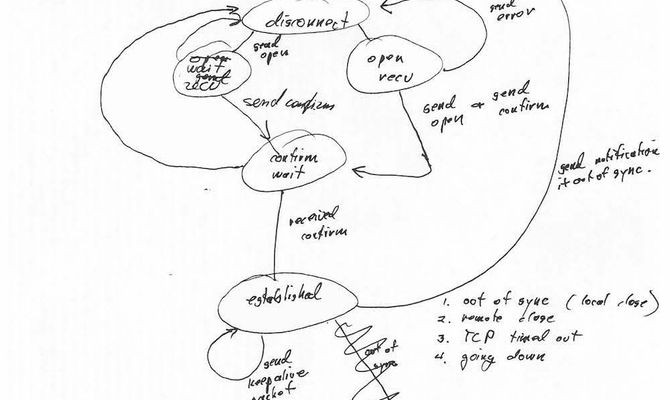 disconnect
send
error
send
open
open
wait
send
recv
open
recv
send confirm
send or send
open confirm
confirm
wait
send notification
if out of sync.
received
confirm
established
1. out of sync (local close)
2. remote close
3. TCP timed out
4. going down
out of
sync
send
keepalive
packet